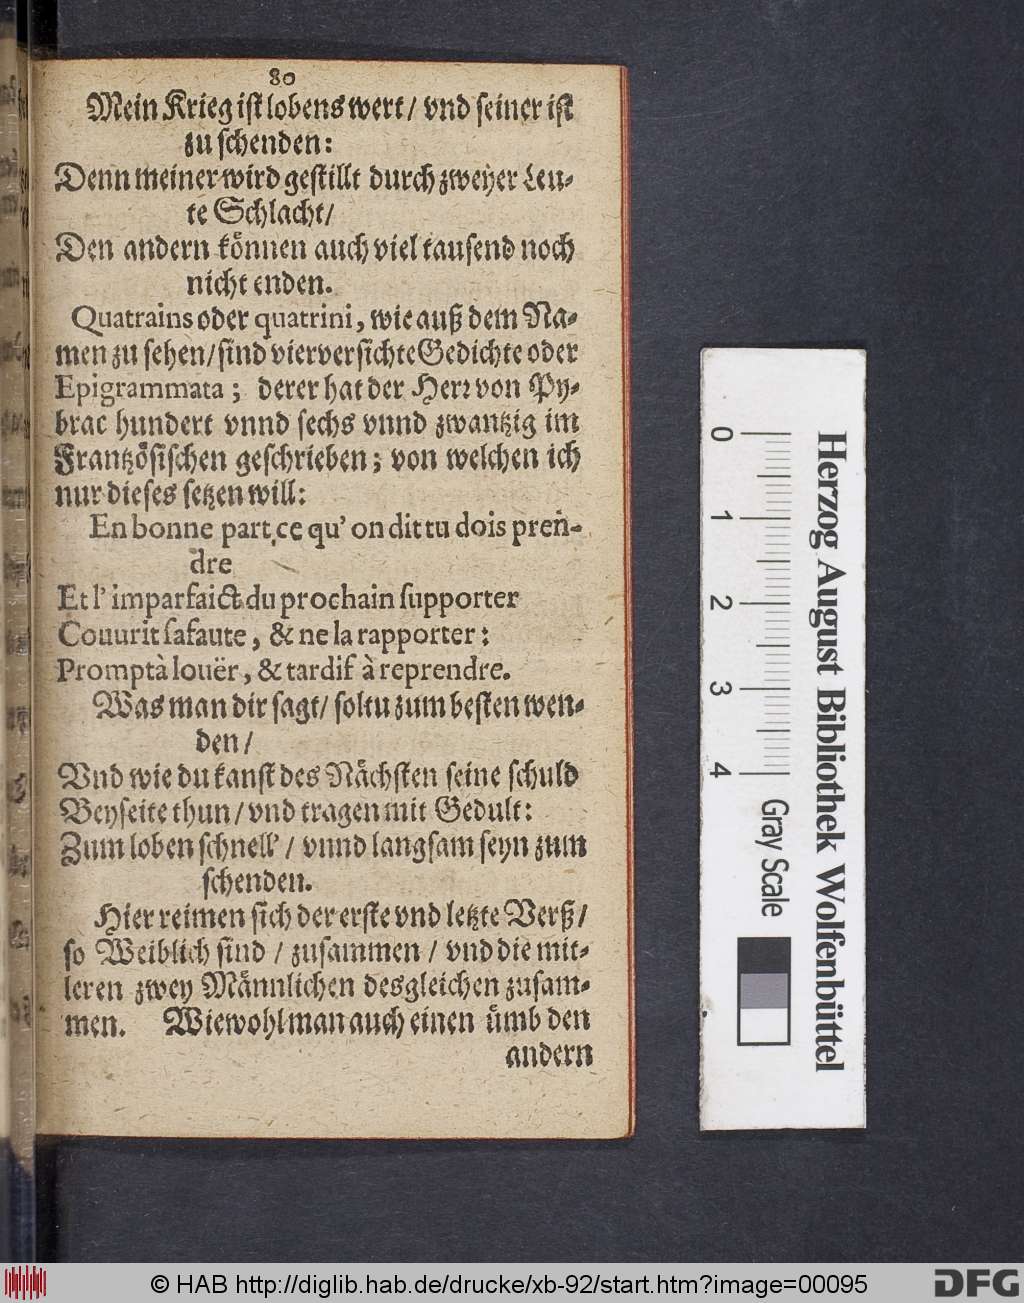 80
Mein Krieg ist lobens wert / vnd seiner ist
zu schenden:
Denn meiner wird gestillt durch zweyer Leu-
te Schlacht/
Den andern können auch viel tausend noch
nicht enden.
Quatrains oder quatrini, wie auß dem Na-
men zu sehen/ sind vierversichte Gedichte oder
Epigrammata; derer hat der Herr von Py-
brac hundert vnnd sechs vnnd zwantzig im
Frantzösischen geschrieben; von welchen ich
nur dieses setzen will:
En bonne part ce qu' on dit tu dois pren-
dre
Et l' imparfaict du prochain supporter
Couurit sa faute, & ne la rapporter:
Prompt à louër, & tardif à reprendre.
Was man dir sagt/ soltu zum besten wen-
den /
Vnd wie du kanst des Nächsten seine schuld
Beyseite thun / vnd tragen mit Gedult:
Zum loben schnell' / vnnd langsam seyn zum
schenden.
Hier reimen sich der erste vnd letzte Verß /
so Weiblich sind / zusammen / vnd die mit-
leren zwey Männlichen desgleichen zusam-
men. Wiewohl man auch einen ümb den
andern
0 1 2 3 4
Gray Scale
Herzog August Bibliothek Wolfenbüttel
© HAB http://diglib.hab.de/drucke/xb-92/start.htm?image=00095
DFG